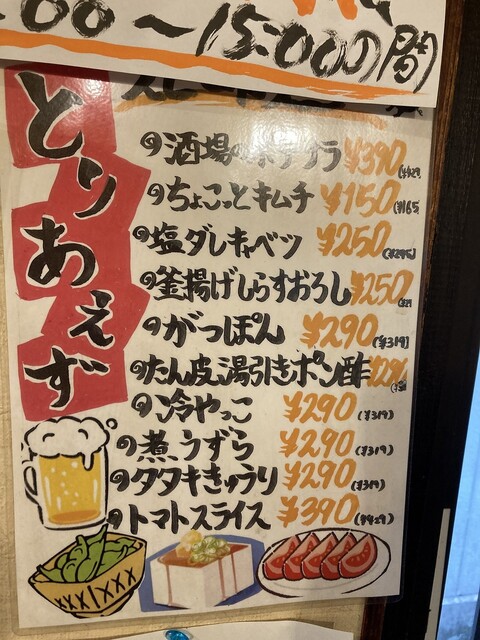 00〜15:00の間
とりあえず
酒場のポテサラ ¥390 (¥429)
ちょこっとキムチ ¥150 (¥165)
塩ダレキャベツ ¥250
釜揚げしらすおろし ¥250
がっぽん ¥290 (¥319)
たん皮湯引きポン酢
冷やっこ ¥290 (¥319)
煮うずら ¥290 (¥319)
タタキきゅうり ¥290 (¥319)
トマトスライス ¥390 (¥429)